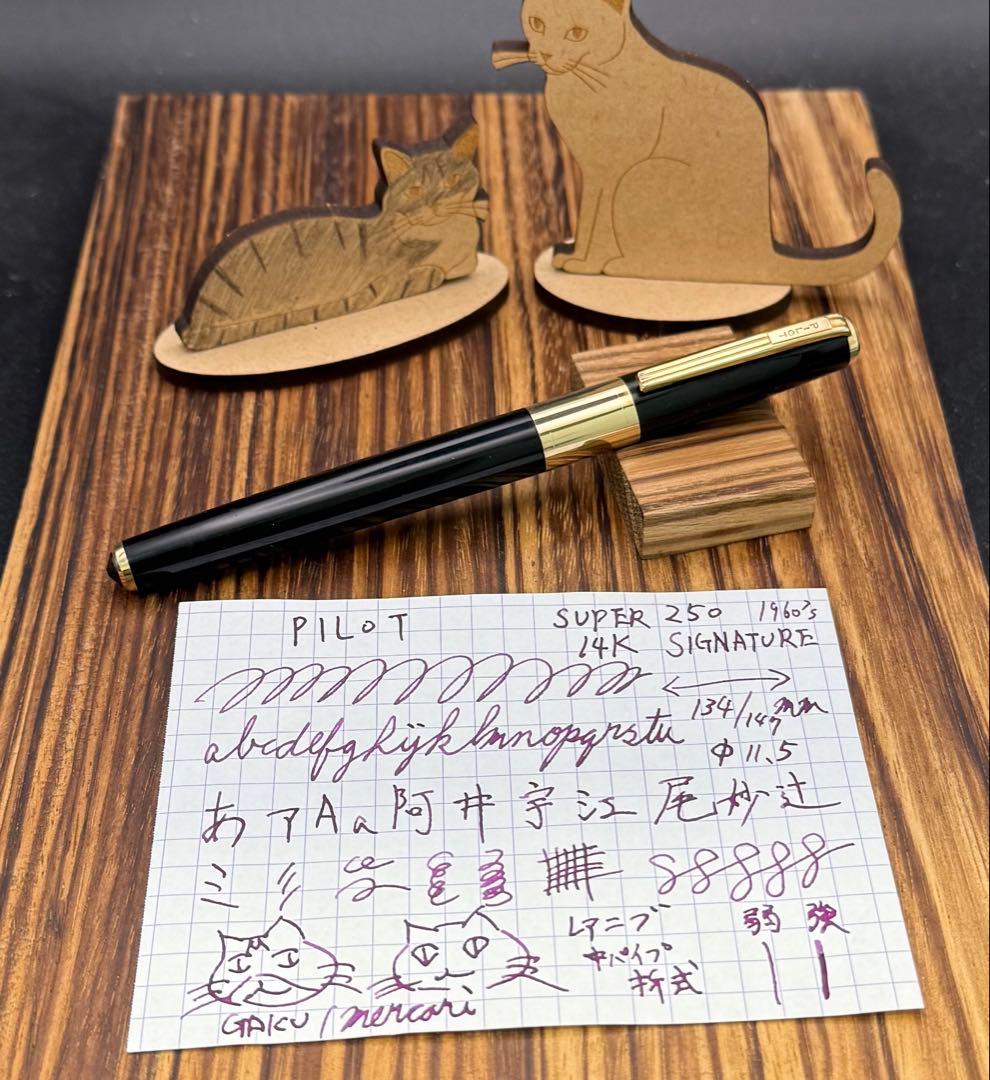 PILOT
PILOT
SUPER 250 1960's
14K SIGNATURE
134/147mm
abcdefghijklmnopqrstu
Φ 11.5
あ ア A a 阿 井 宇 江 尾 妙 辻
レアニブ 弱 強
中パイプ
折式
GAKU / mercari